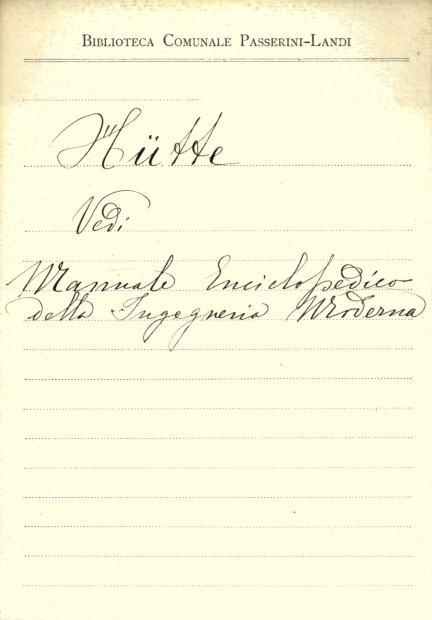 Biblioteca Comunale Passerini-Landi
Hütte
Vedi
Manuale Enciclopedico
della Ingegneria Moderna